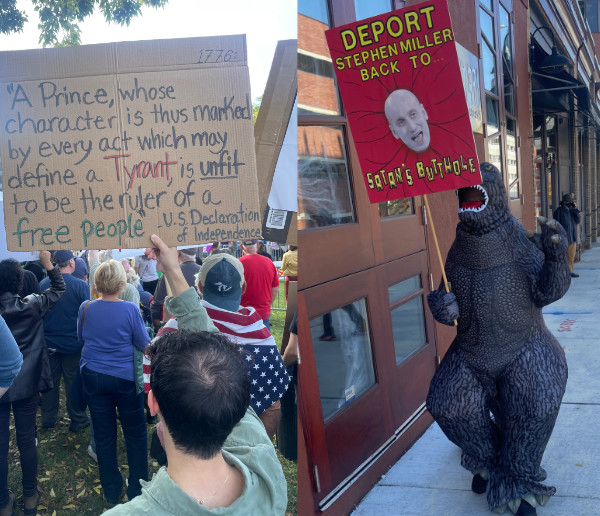 1776:
"A Prince, whose
character is thus marked
by every act which may
define a Tyrant is unfit
to be the ruler of a
free people" U.S. Declaration
of Independence
DEPORT
STEPHEN MILLER
BACK TO...
SATAN'S BUTTHOLE